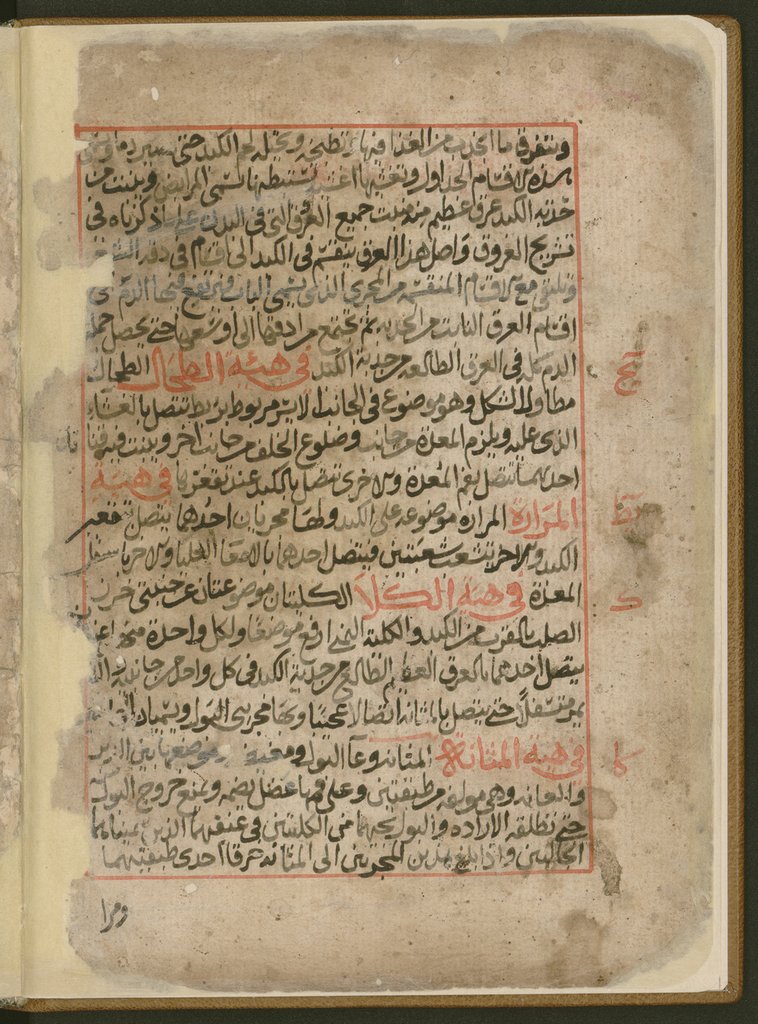 ويتفرق ما انجذب من الغذا فيها وتطبخه ويحيله لحم الكبد حتى يصير دما
هذه الاقسام الجداول وتغشيها اغشية تسمى المرابض وينبت من
حدبه الكبد عرق عظيم منه منبت جميع العروق التي في البدن على ما ذكرناه في
تشريح العروق واصل هذا العرق ينقسم في الكبد الى اقسام في دقه الشعر
وتلتقي مع الاقسام المنقسمه من المجرى الذي يسمى الباب وترتفع فيها الدم
اقسام العرق النابت من الحدبه ثم يجتمع من ادقها الى اوسعها حتى يحصل جمله
الدم كله في العرق الطالع من حدبة الكبد في هيئة الطحال الطحال
مطاول الشكل وهو موضوع في الجانب الايسر مربوط برباط تتصل بالغشاء
الذي عليه ويلزم المعدة من جانب وضلوع الخلف من جانب اخر وينبت منه قناتان
احديهما تتصل بفم المعدة والاخرى تتصل بالكبد عند تقعيرها في هيئة
المرارة المراره موضوعه على الكبد ولها مجريان احدهما يتصل بتقعير
الكبد والاخر يتشعب شعبتين فيتصل احدهما بالامعا العليا والاخر باسفل
المعدة في هيئة الكلا الكليتان موضوعتان عن جنبتي خرز
الصلب بالقرب من الكبد والكلية اليمنى ارفع موضعا ولكل واحدة منهما
يتصل احدهما بالعرق العظيم الطالع من حدبة الكبد في كل واحد من جانبيه
يمر متسفلا حتى يتصل بالمثانه اتصالا عجيبا وهما مجرى البول ويسميان
في هيئة المثانة المثانه وعا البول ومعدنه وموضعها بين الدبر
والعانه وهي مولفه من طبقتين وعلى فمها عضل يضمه ويمنع خروج البول
حتى تطلقه الاراده والبول يجيها من الكليتين في عنقيهما الذين سميناهما
الحالبين واذا بلغ هذين المجريين الى المثانه خرقا احدى طبقتيهما
ومرا
يح
يط
ك
كا